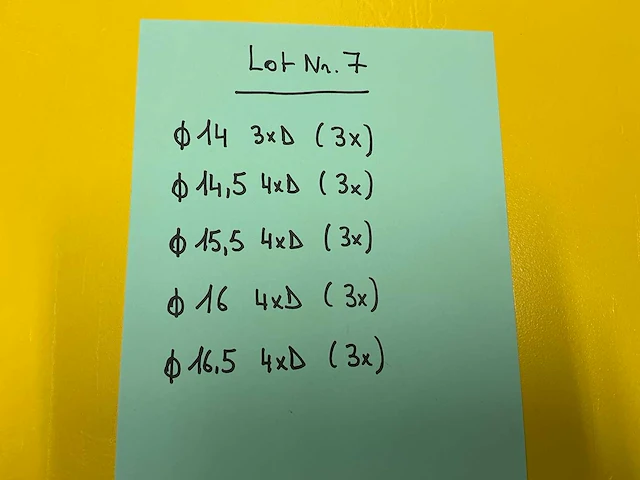 Lot Nr. 7
ϕ 14 3xD (3x)
ϕ 14,5 4xD (3x)
ϕ 15,5 4xD (3x)
ϕ 16 4xD (3x)
ϕ 16.5 4xD (3x)